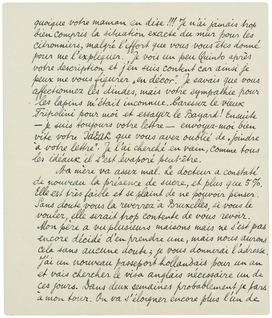 quoique votre maman en dise !!! Je n'ai jamais trop
bien compris la situation exacte du mur pour les
citronniers, malgré l'effort que vous vous êtes donné
pour me l'expliquer. Je vois un peu Quinto après
votre description, et j'en suis content car ainsi je
peux me vous figurer "en décor". Je savais que vous
affectionnez les dindes, mais votre sympathie pour
les lapins m'était inconnue. Caressez le vieux
Tripolini pour moi et essayez le Bayard! Ensuite
je suis toujours votre lettre — envoyez-moi bien
vite votre que vous avez oublié de "joindre
à votre lettre". Je l'ai cherché en vain, comme tous
les idéaux il s'est évaporé peut-être.
Ma mère va assez mal. Le docteur a constaté
de nouveau la présence de sucre, et plus que 5 %.
Elle est très faible et se plaint de ne pouvoir penser.
Sans doute vous la reverrez à Bruxelles, si vous le
voulez, elle serait trop contente de vous revoir.
Mon père a vu plusieurs maisons mais ne s'est pas
encore décidé d'en prendre une, mais nous aurons
cela sans aucune doute; je vous donnerai l'adresse.
J'ai un nouveau passeport hollandais pour un an
et vais chercher le visa anglais nécessaire un de
ces jours. Dans deux semaines probablement je pars
à mon tour. On va s'éloigner encore plus l'un de